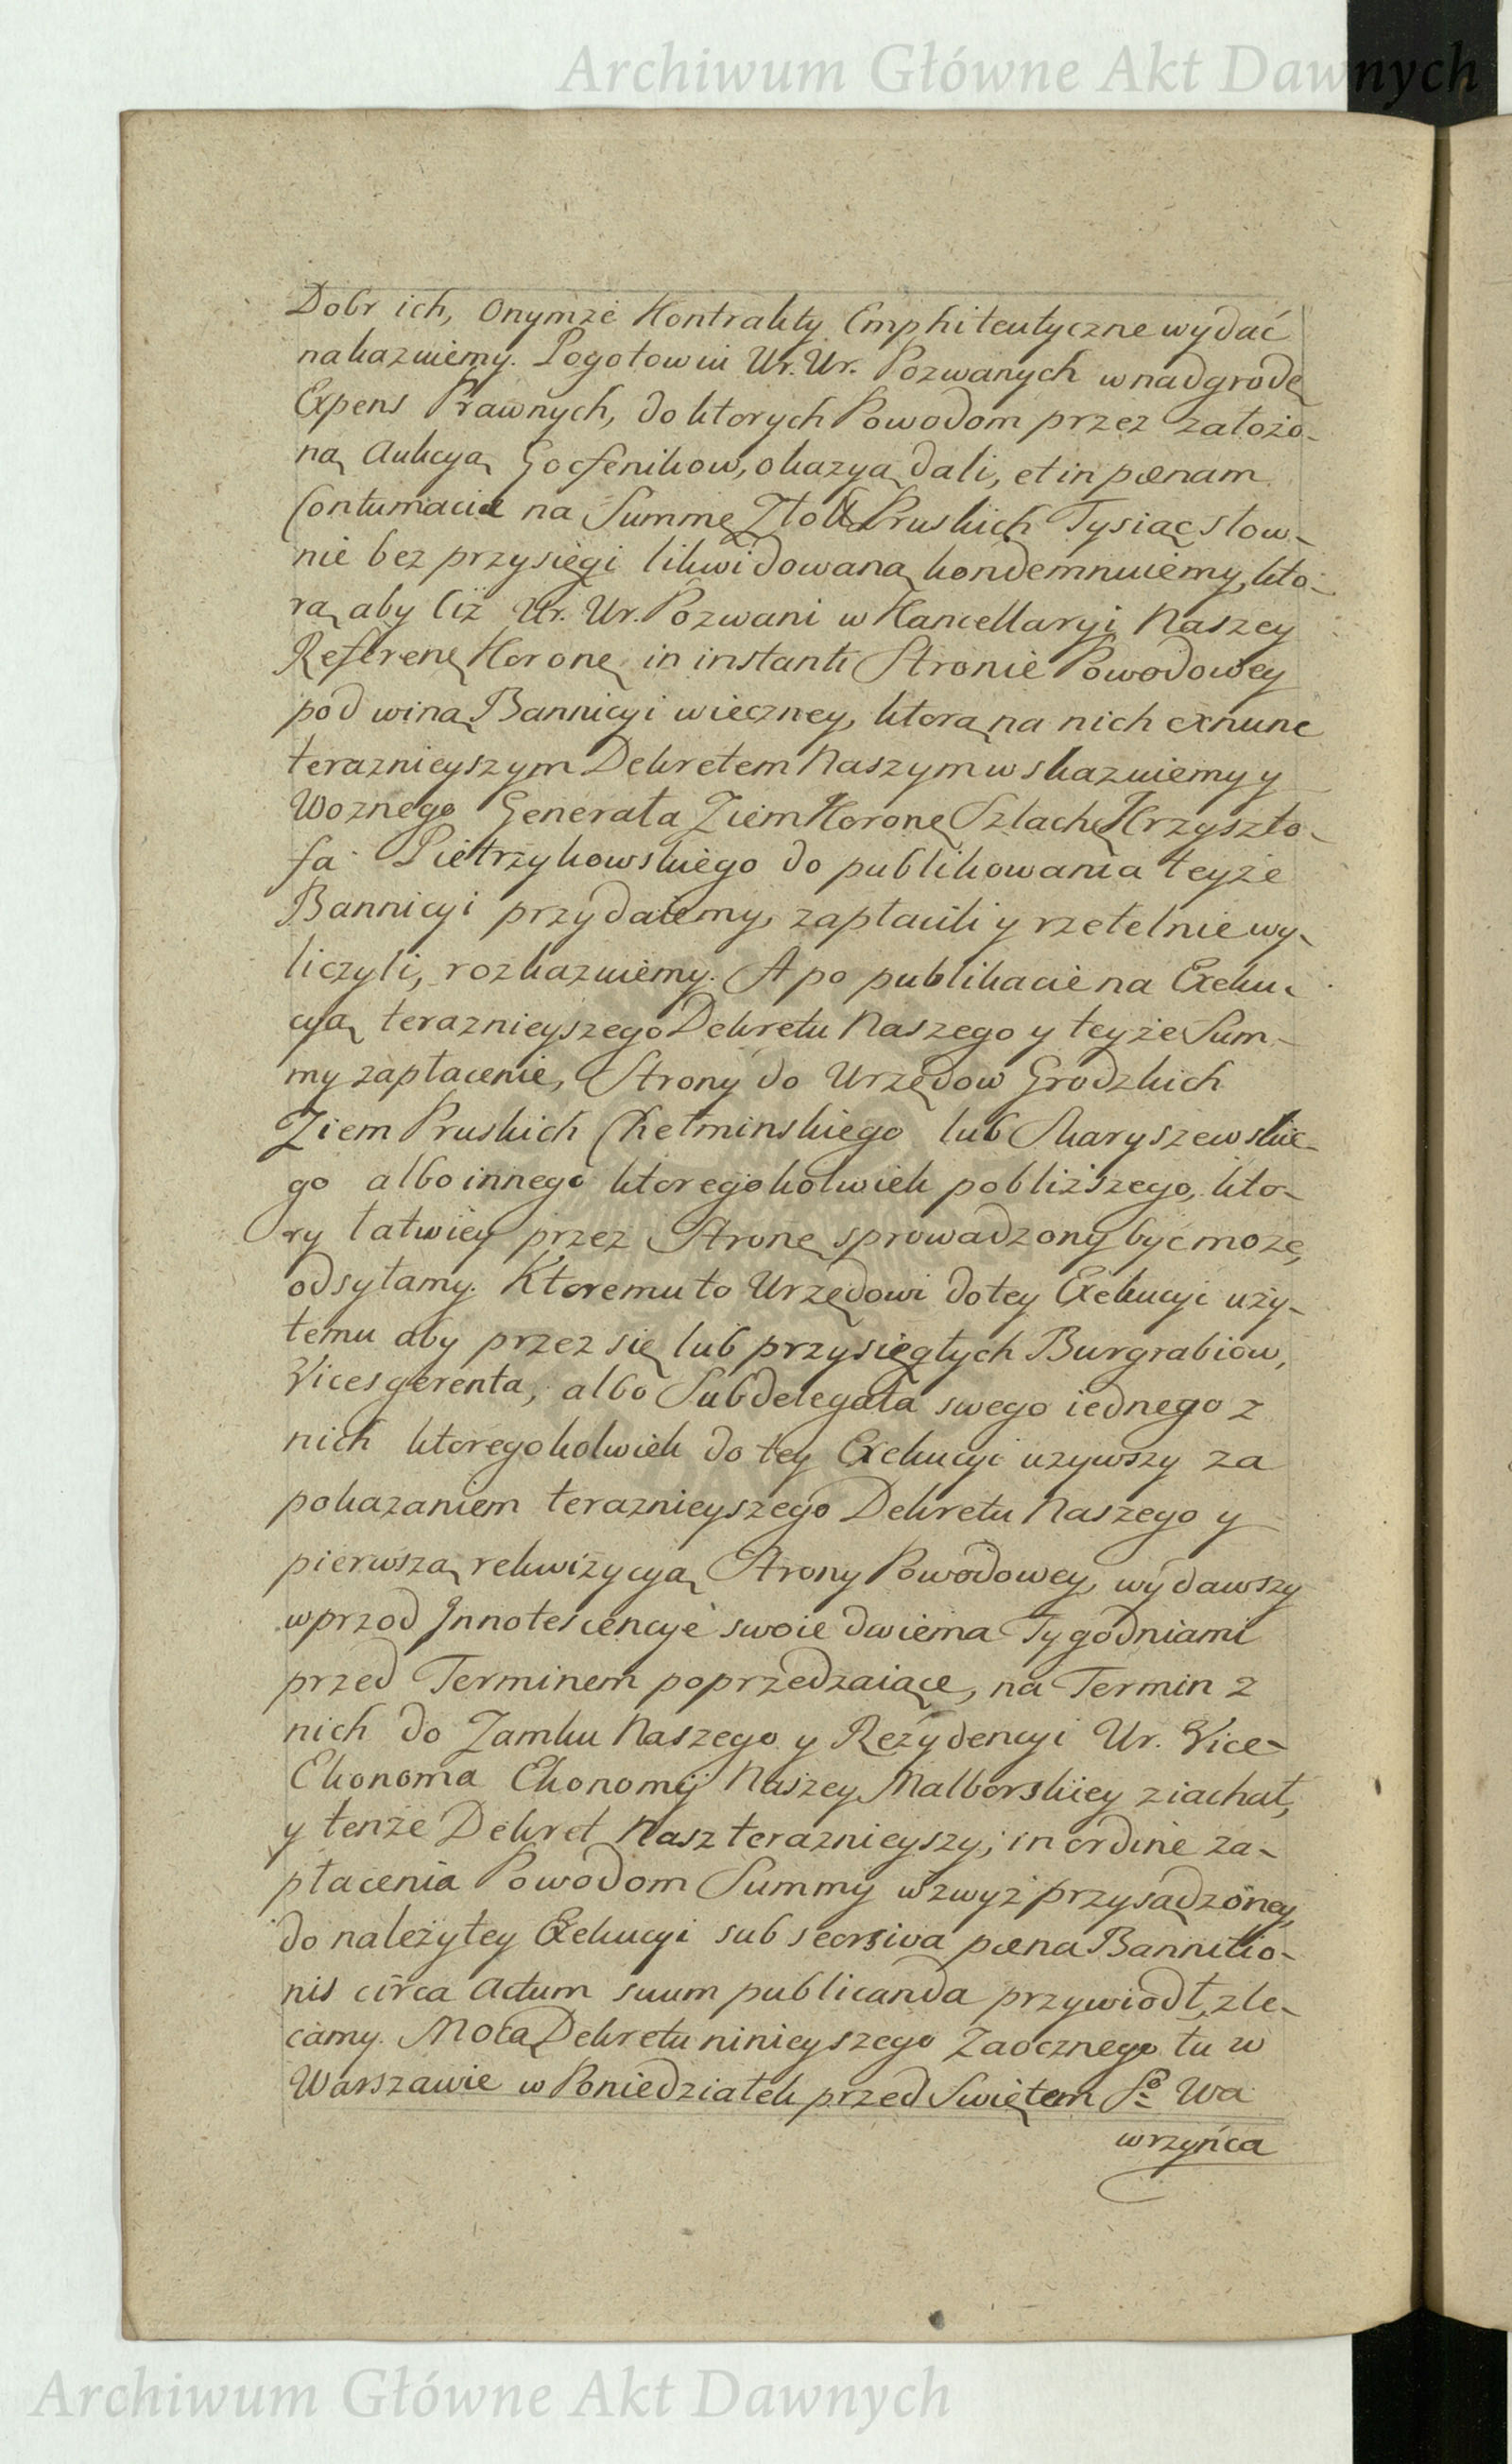 Archiwum Główne Akt Dawnych
Dobr ich, Onymże Kontrakty Emphiteutyczne wydać
nakazuiemy. Pogotowiu Ur. Ur. Pozwanych w nadgrodę
Expens Prawnych, do ktorych Powodom przez założo-
ną Aukcyą Gocfenikow, okazyą dali, et in pœnam
Contumaciæ na Summę Złołł Pruskich Tysiąc słow-
nie bez przysięgi likwidowaną kondemnuiemy, kto-
rą aby Ciż Ur. Ur. Pozwani w Kancellaryi Naszey
Referenę Koronę in instanti Stronie Powodowey
pod winą Bannicyi wieczney, ktorą na nich exnunc
teraznieyszym Dekretem Naszym wskazuiemy y
Woznego Generała Ziem Koronę Szlachę Krzyszto-
fa Pietrzykowskiego do publikowania teyże
Bannicyi przydaiemy, zapłacili y rzetelnie wy-
liczyli, rozkazuiemy. A po publikacie na Exeku-
cyą teraznieyszego Dekretu Naszego y teyże Sum-
my zapłacenie, Strony do Urzędow Grodzkich
Ziem Pruskich Chełminskiego lub Skaryszewskie-
go albo innego ktoregokolwiek pobliższego, kto-
ry łatwiey przez Stronę sprowadzony być może,
odsyłamy. Ktoremu to Urzędowi do tey Exekucyi uży-
temu aby przez się lub przysięgłych Burgrabiow,
Vicesgerenta, albo Subdelegata swego iednego z
nich ktoregokolwiek do tey Exekucyi uzywszy za
pokazaniem teraznieyszego Dekretu Naszego y
pierwszą rekwizycyą Strony Powodowey, wydawszy
wprzod Innotescencye swoie dwiema Tygodniami
przed Terminem poprzedzaiące, na Termin z
nich do Zamku Naszego y Rezydencyi Ur. Vice-
Ekonoma Ekonomij Naszey Malborskiey ziachał,
y tenże Dekret Nasz teraznieyszy, in ordine za-
płacenia Powodom Summy wzwyż przysądzoney,
do należytey Exekucyi sub seorsiva pœna Bannitio-
nis circa Actum suum publicanda przywiodł, zle-
camy. Mocą Dekretu ninieyszego Zaocznego tu w
Warszawie w Poniedziałek przed Swiętem Sº Wa
wrzyńca
Archiwum Główne Akt Dawnych